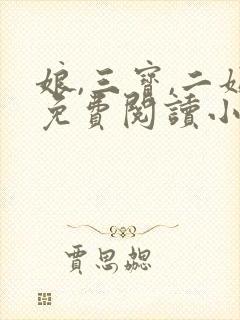 娘,三寶,二妞
免費閱讀小
賈思勰